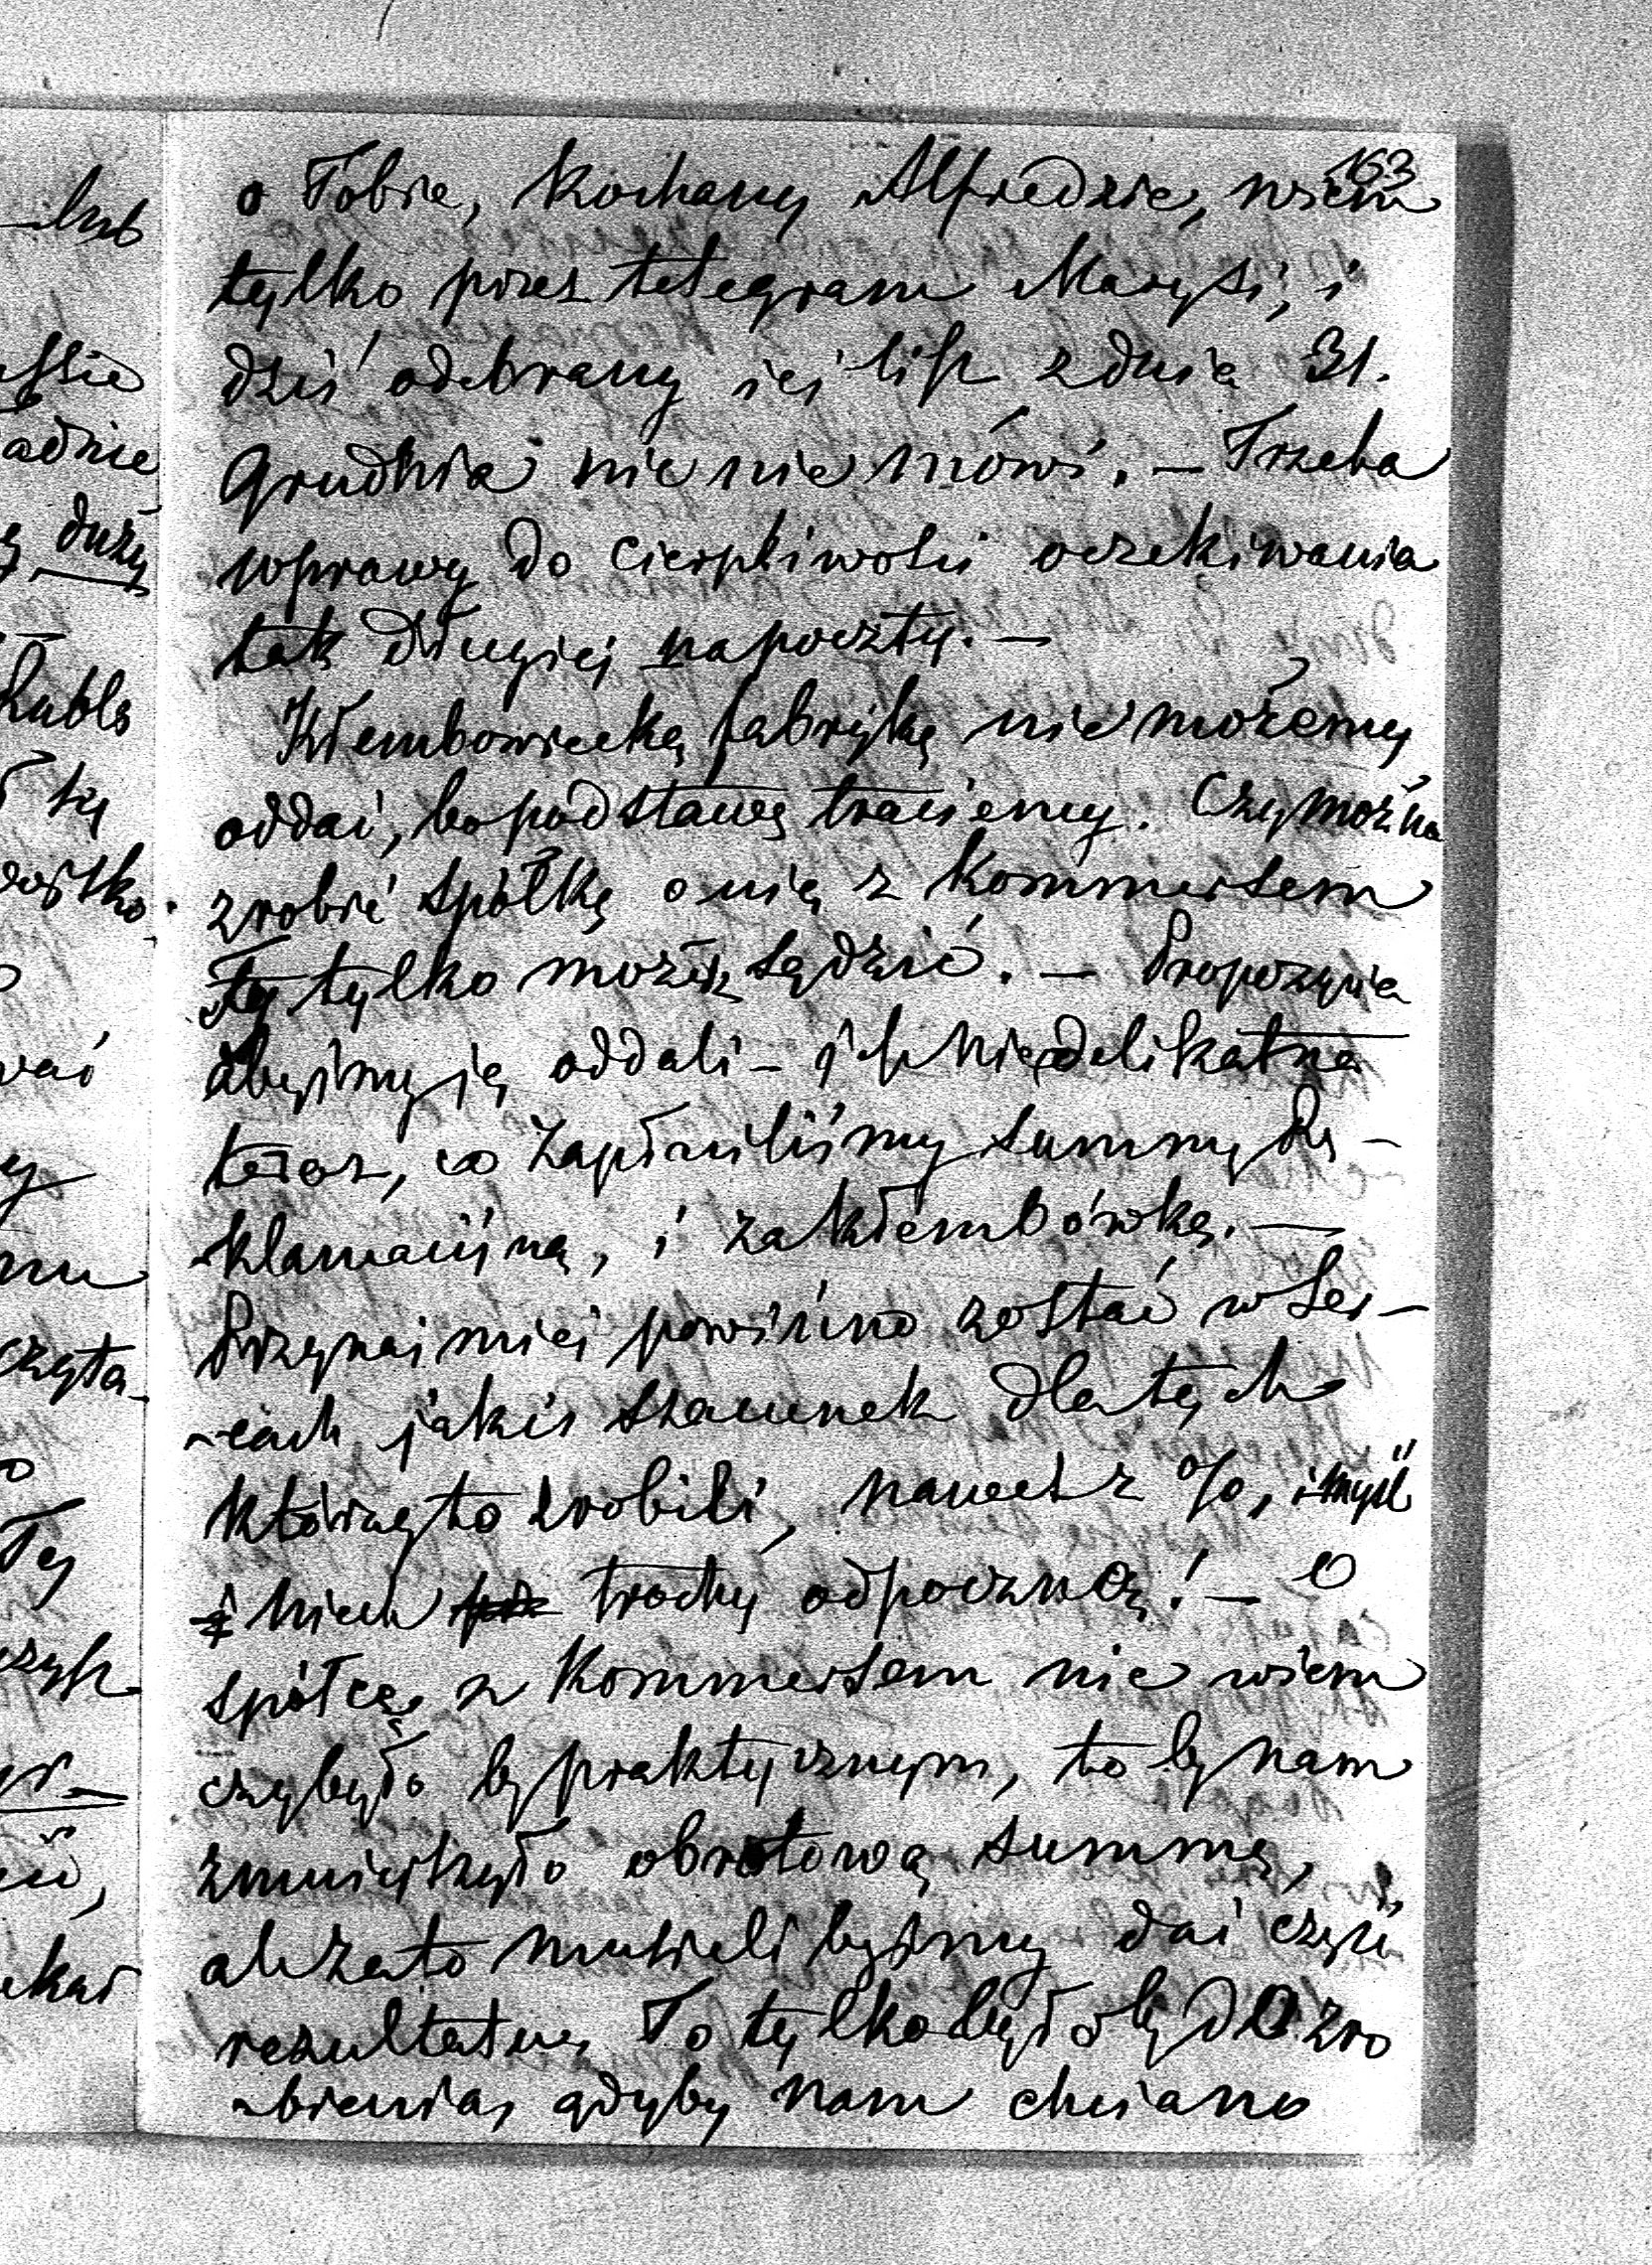 163
o Tobie, kochany Alfredzie, wiem
tylko przez telegram Marysi, i
dziś odebrany jej list z dnia 31.
Grudnia nic nie mówi. — Trzeba
wprawy do cierpliwości oczekiwania
tak długiej na pocztę. —
Kłembowiecką fabrykę nie możemy
oddać, bo podstawę traciemy. Czy można
zrobić spółkę o nią z Kommersem
Ty tylko możesz sądzić. — Propozycia
abyśmy ją oddali – jest niedelikatna
teraz, co zapłaciliśmy summę Re –
-klamacijną, i za kłembówkę. —
Przynajmniej powinno zostać w Ser –
-cach jakiś szacunek dla tych
którzy to zrobili, nawet z %, i myśl
niech trochę odpoczną! — O
spółce z Kommersem nie wiem
czy było by praktycznem, to by nam
zmniejszyło obrotową summę,
ale zato musieli byśmy dać część
rezultatu. To tylko było by do zro
-bienia, gdyby nam chciano